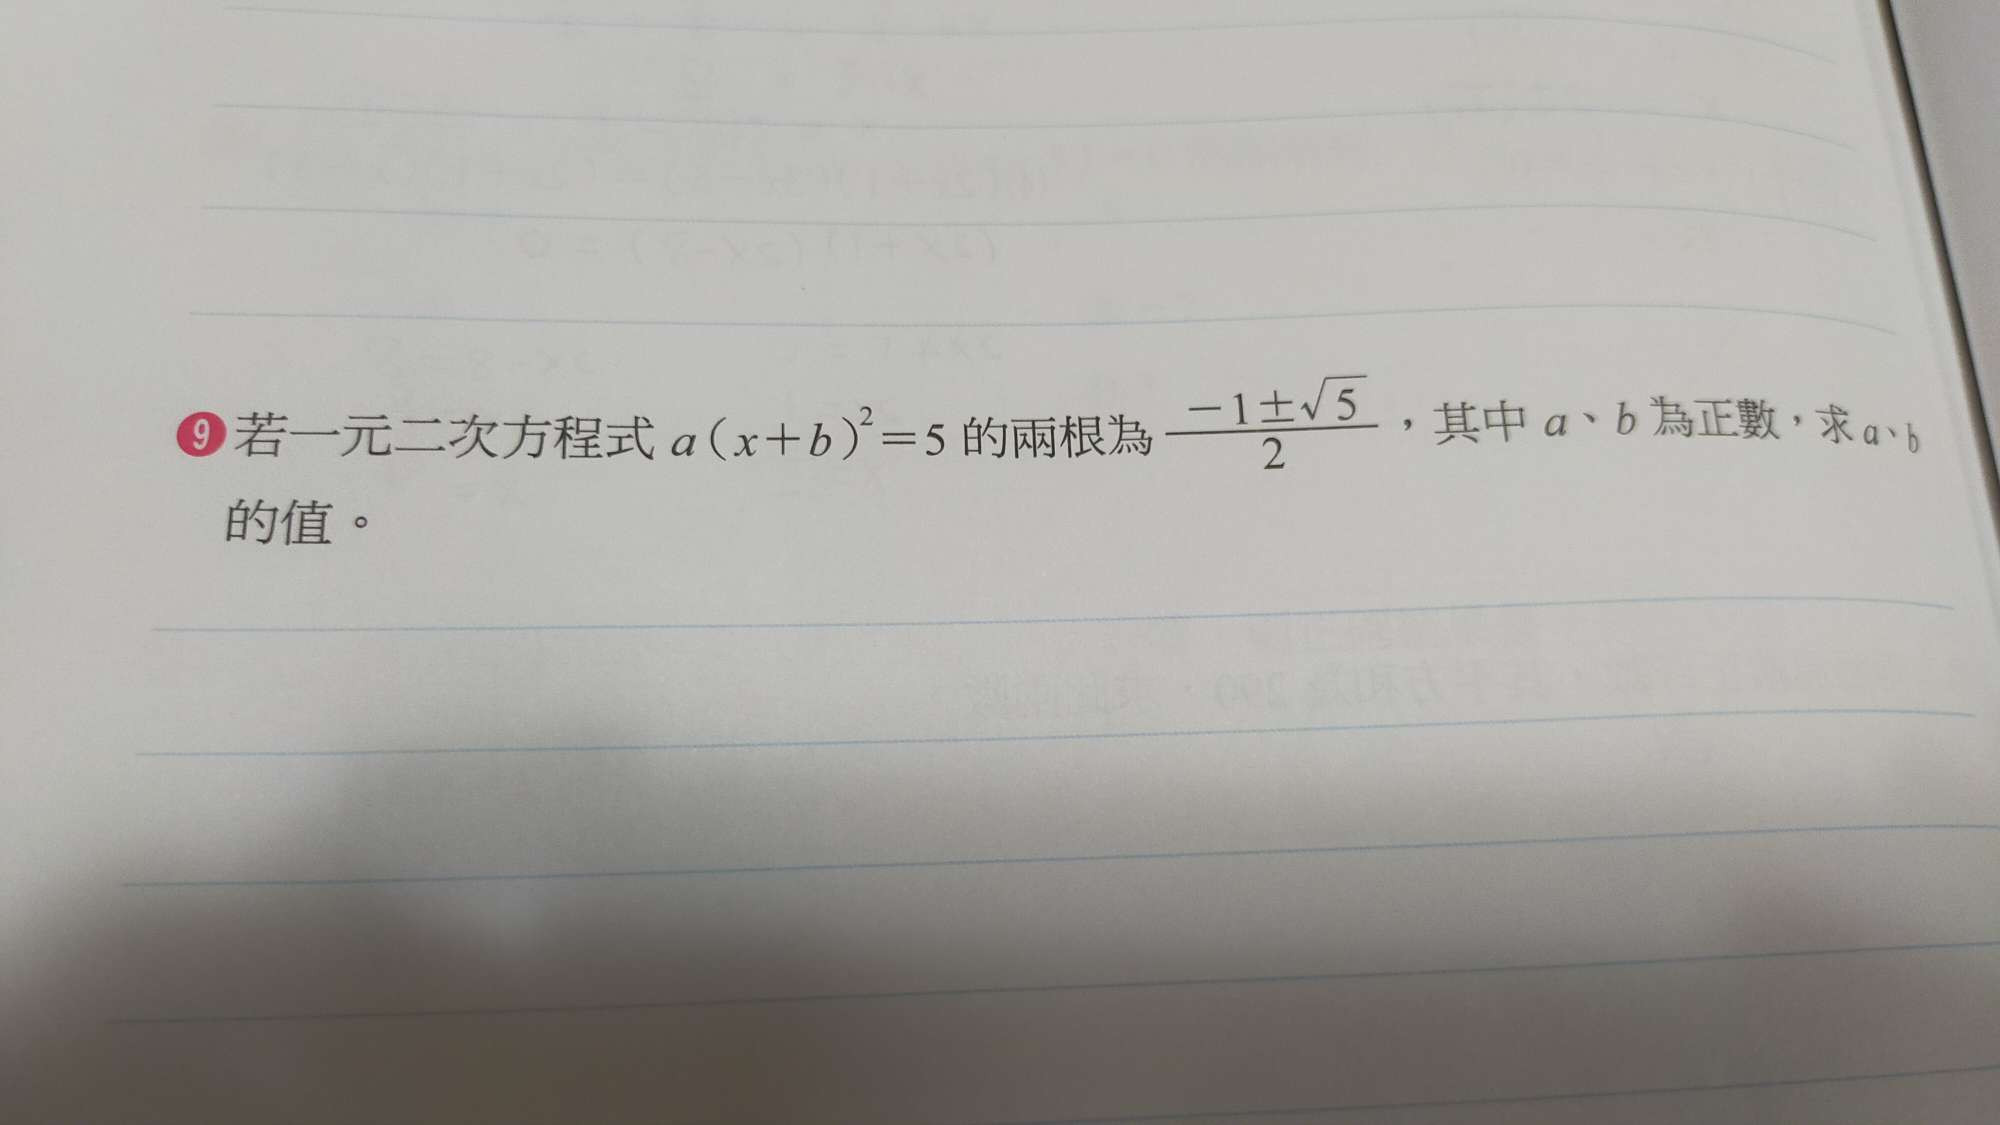 9 若一元二次方程式 a(x+b)²=5 的兩根為 (-1±√5)/2，其中 a、b 為正數，求 a、b
的值。